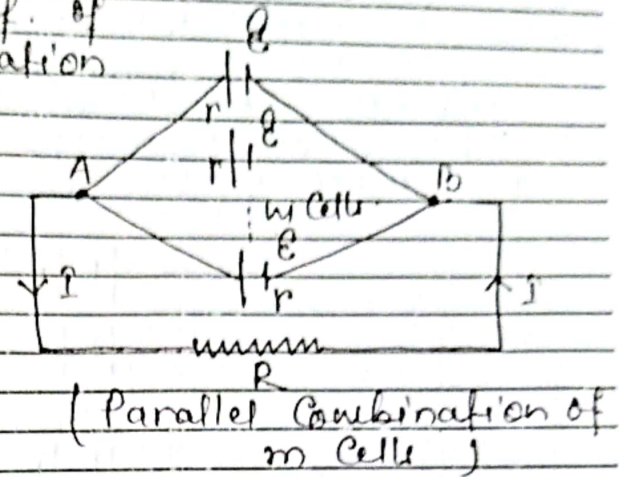 f. of
ation
ε
r
ε
r
A
B
m Cells
ε
r
I
I
R
( Parallel Combination of
m Cells )